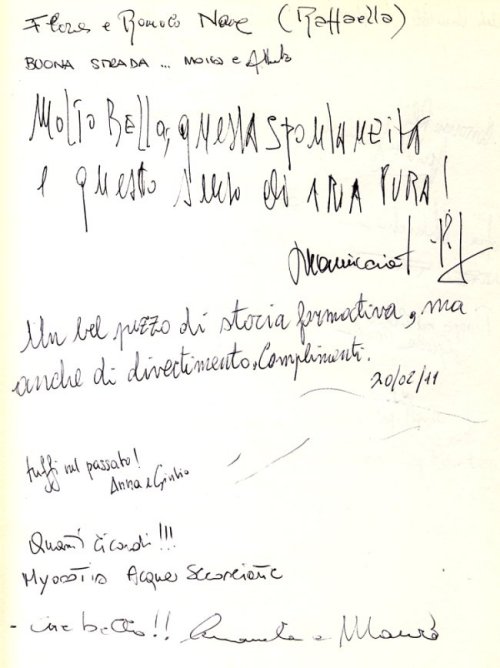 Flora e Romolo Nave (Raffaella)
BUONA STRADA ... MOIRA e
MOLTO BELLA, QUESTA SPONTANEITÀ
E QUESTO SENSO DI ARIA PURA!
Un bel pezzo di storia formativa, ma
anche di divertimento. Complimenti.
20/02/11
tuffi nel passato!
Anna e Giulio
Quanti ricordi!!!
Myosotis Acqua Scorciante
- che bello!! e Mauro